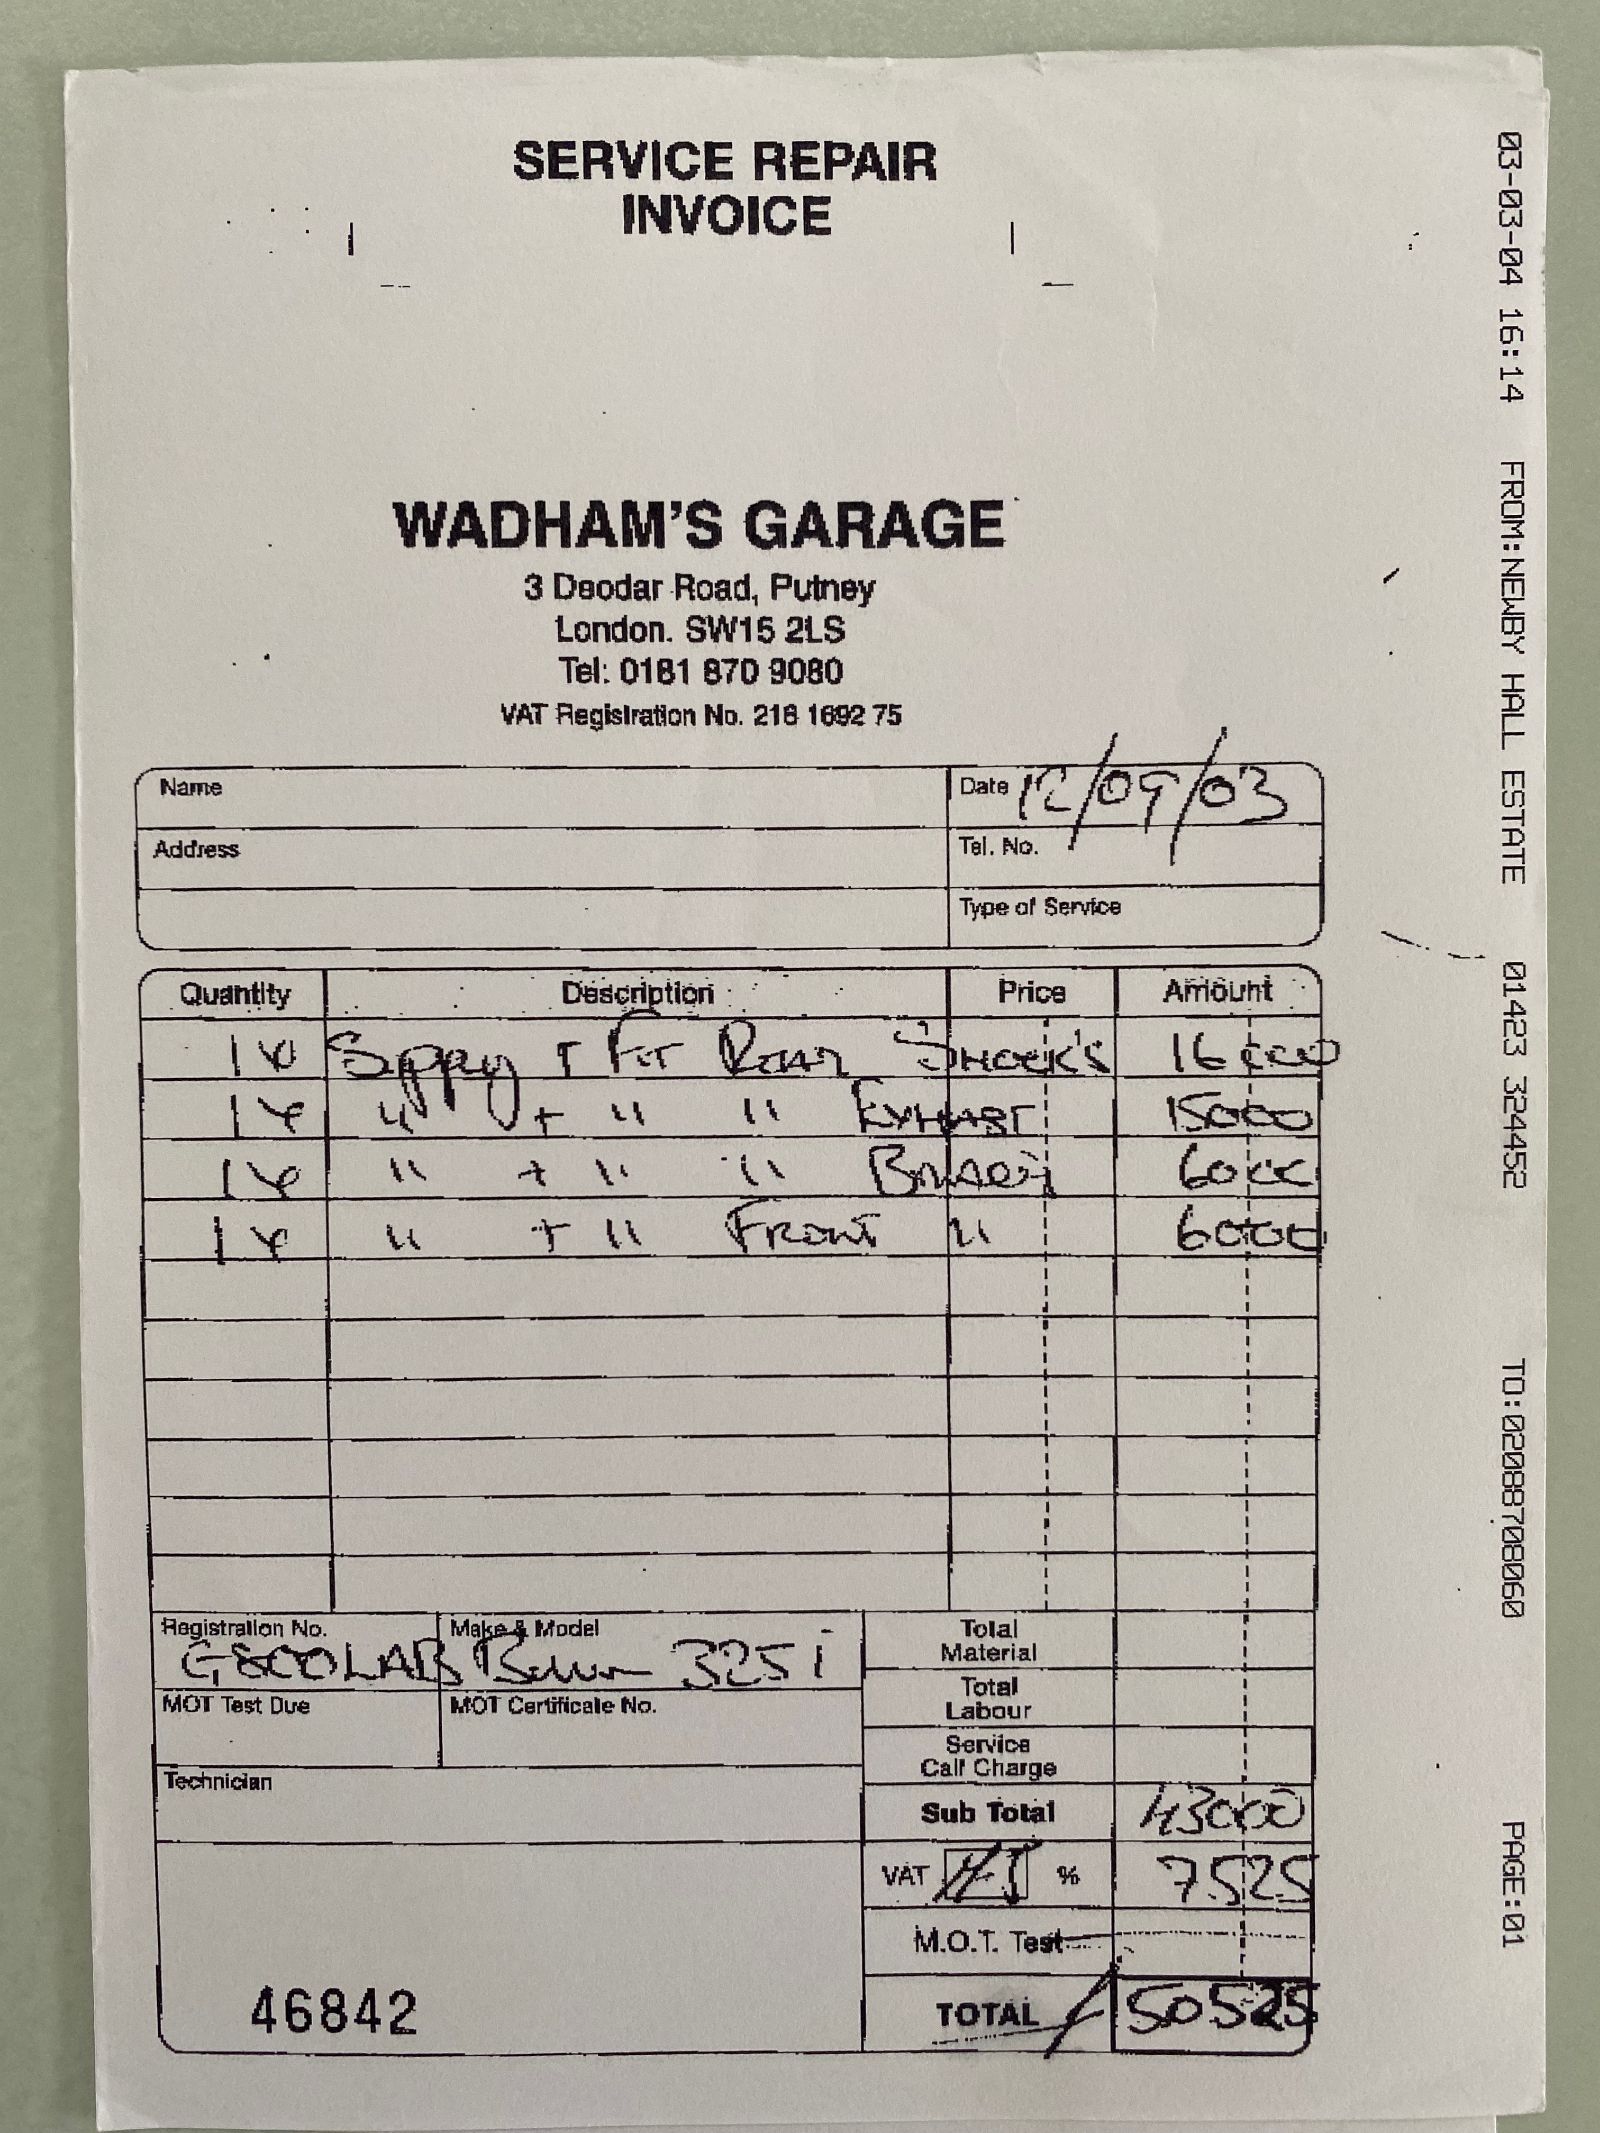 SERVICE REPAIR
INVOICE
WADHAM'S GARAGE
3 Deodar Road, Putney
London. SW15 2LS
Tel: 0181 870 9080
VAT Registration No. 218 1692 75
Name
Date 12/09/03
Address
Tel. No.
Type of Service
Quantity Description Price Amount
1 x Supply + Fit Rear Shock's 160 00
1 x " + " " Exhast 150 00
1 x " + " " 60 00
1 x " + " Front " 60 00
Registration No. Make & Model
G800LAB 325i
MOT Test Due MOT Certificate No.
Technician
Total
Material
Total
Labour
Service
Call Charge
Sub Total 430 00
VAT % 75 25
M.O.T. Test
TOTAL 505 25
46842
03-03-04 16:14 FROM:NEWBY HALL ESTATE 01423 324452 TO:02088708060 PAGE:01